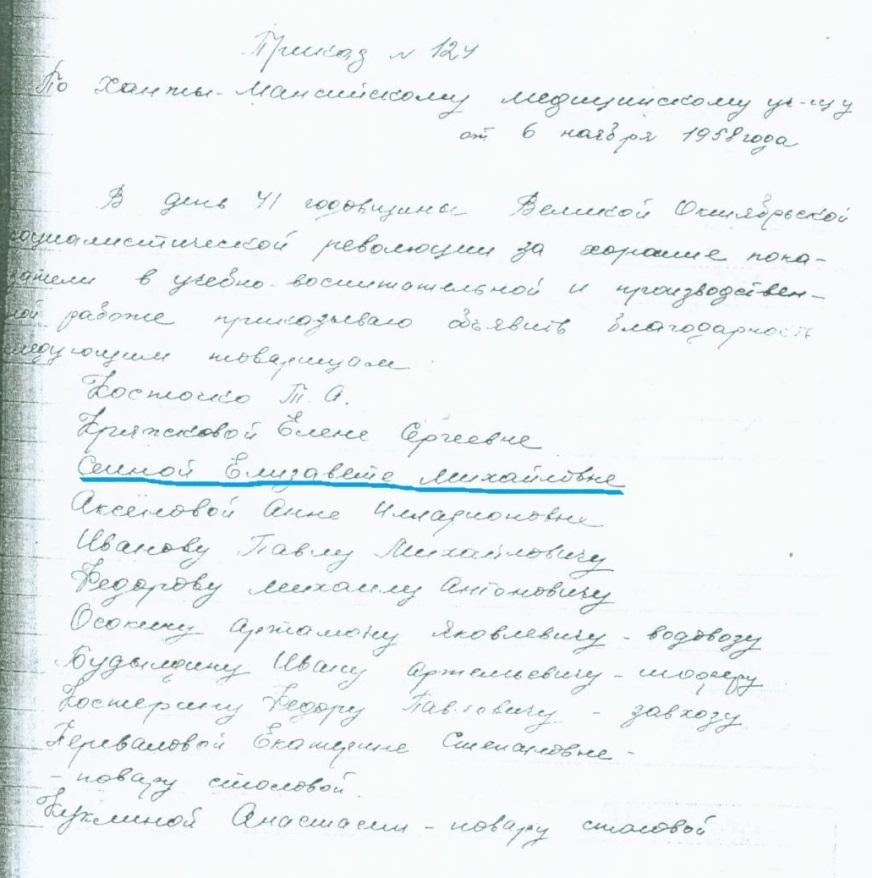 Приказ № 124
По Ханты-Мансийскому медицинскому уч-щу
от 6 ноября 1958 года
В день 41 годовщины Великой Октябрьской
социалистической революции за хорошие пока-
затели в учебно-воспитательной и производствен-
ной работе приказываю объявить благодарность
следующим товарищам
Косточко Т. А.
Кряжковой Елене Сергеевне
Сенной Елизавете Михайловне
Аксёновой Анне Илларионовне
Иванову Павлу Михайловичу
Федорову Михаилу Антоновичу
Осокину Артамону Яковлевичу - водовозу
Будылдину Ивану Артемьевичу - шоферу
Костерину Федору Павловичу - завхозу
Переваловой Екатерине Степановне -
- повару столовой.
Куклиной Анастасии - повару столовой